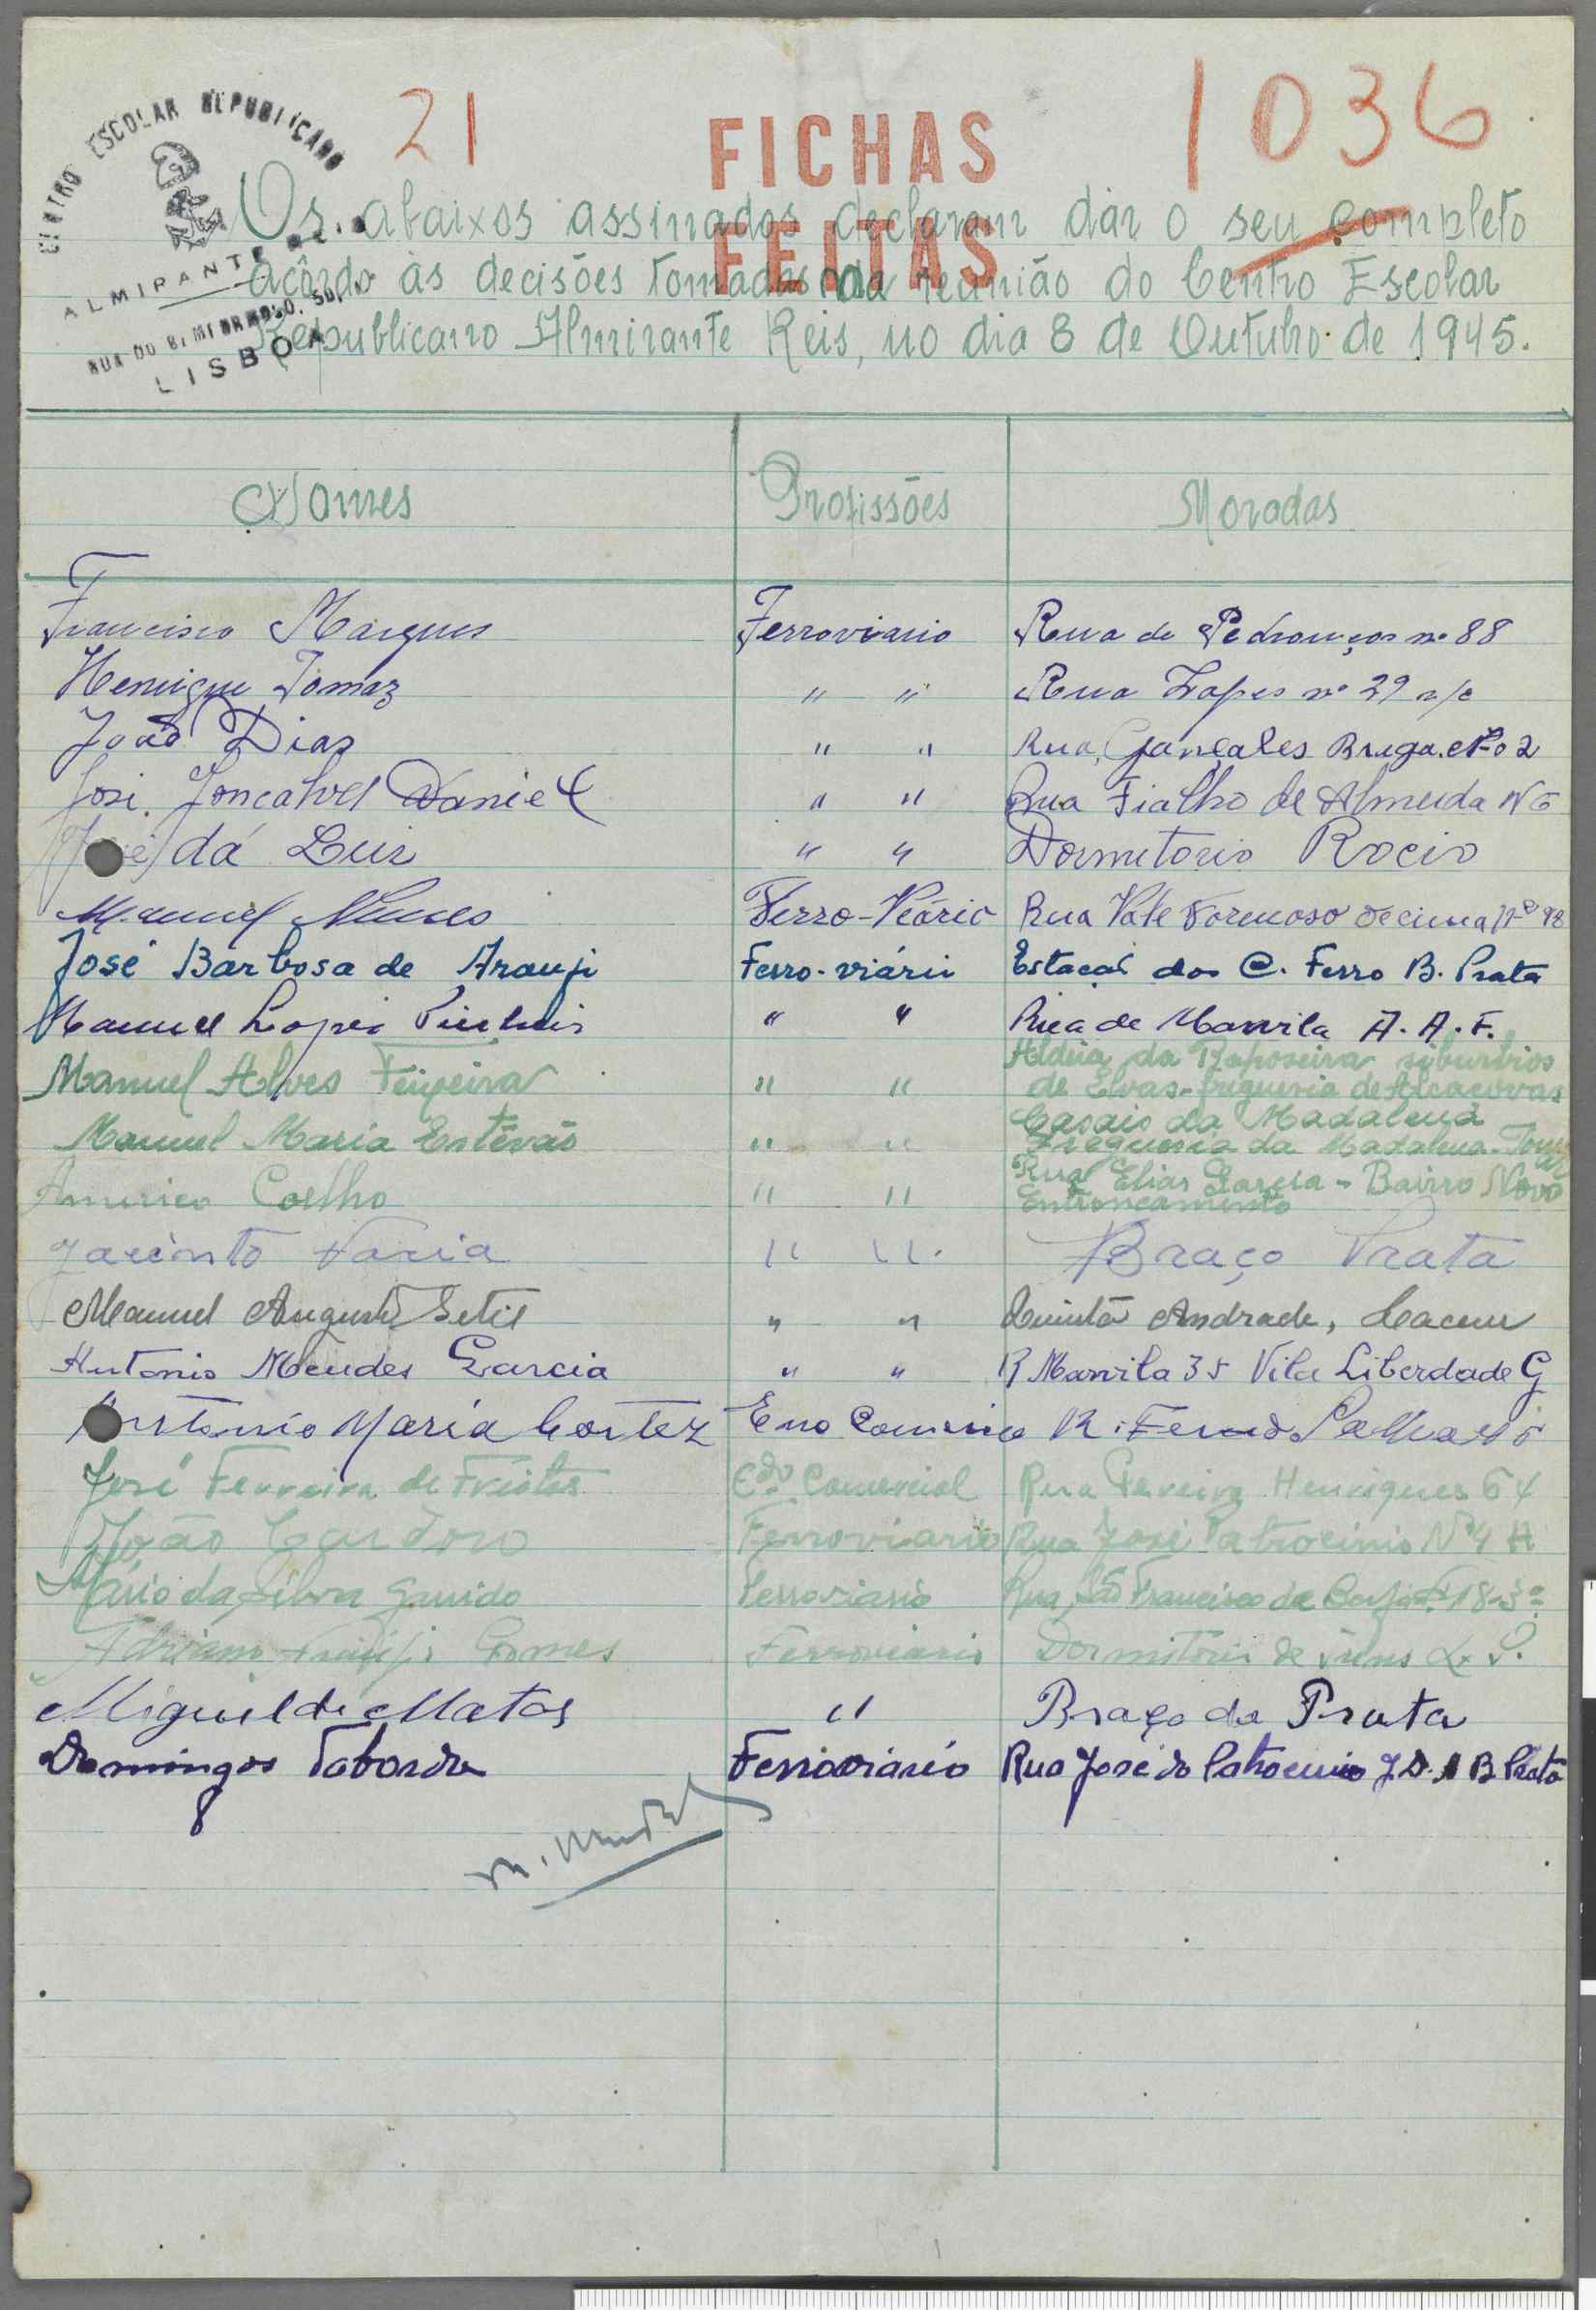 CENTRO ESCOLAR REPUBLICANO
ALMIRANTE REIS
RUA DO BEMFORMOSO, 50,
LISBOA
21
FICHAS
FEITAS
1036
Os abaixos assinados declaram dar o seu completo
acôrdo às decisões tomadas na reunião do Centro Escolar
Republicano Almirante Reis, no dia 8 de Outubro de 1945.
Nomes Profissões Moradas
Francisco Marques Ferroviario Rua de Pedrouços nº 88
Henrique Tomaz " " Rua Lopes nº 29 r/c
João Dias " " Rua Gonçales Braga Nº 2
José Gonçalves Daniel " " Rua Fialho de Almeida Nº 6
José da Luiz " " Dormitorio Rocio
Manuel Nunes Ferro-Veário Rua Vale Formoso de cima nº 98
José Barbosa de Araujo Ferro-viário Estação dos C. Ferro B. Prata
Manuel Lopes " " Rua de Marvila A. A. F.
Manuel Alves Teixeira " " Aldeia da Raposeira suburbios
de Elvas-freguesia de Alcaçovas
Manuel Maria Estêvão " " Casais da Madalena
Freguesia da Madalena-Tomar
Americo Coelho " " Rua Elias Garcia - Bairro Novo
Entroncamento
Jacinto Faria " " Braço Prata
Manuel Augusto Setil " " Quinta Andrade, Cacem
Antonio Mendes Garcia " " R Marvila 35 Vila Liberdade G
Antonio Maria Cortez Eno Comercio R. Fernando Palha
José Ferreira de Freitas Edo Comercial Rua Pereira Henriques 64
João Cardoso Ferroviario Rua José Patrocinio Nº 4 A
Mário da Silva Garrido Ferroviario Rua São Francisco de Borja 18-3º
Adriano Araújo Gomes Ferroviario Dormitorio de L. P.
Miguel de Matos " Braço da Prata
Domingos Taborda Ferroviario Rua José do Patrocinio J.D. B Prata